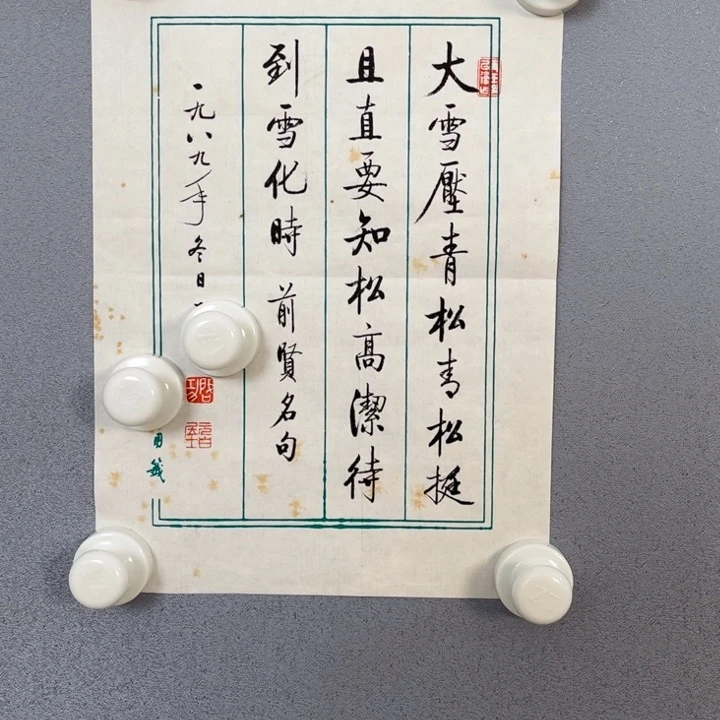 大雪壓青松青松挺
且直要知松高潔待
到雪化時前賢名句
一九八九年冬日
啓功